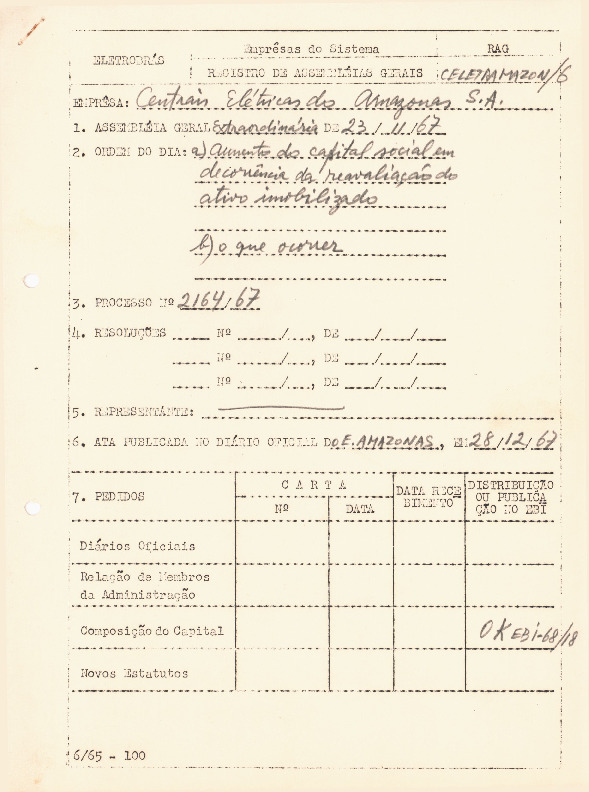 ELETROBRÁS
Emprêsas do Sistema
RAG
REGISTRO DE ASSEMBLÉIAS GERAIS
CELETRAMAZON/6
EMPRÊSA: Centrais Elétricas do Amazonas S.A.
1. ASSEMBLÉIA GERAL Extraordinária DE 23/11/67
2. ORDEM DO DIA: a) Aumento do capital social em
decorrência da reavaliação do
ativo imobilizado
b) o que ocorrer
3. PROCESSO Nº 2164/67
4. RESOLUÇÕES ..... Nº ...../..., DE ..../..../....
..... Nº ...../..., DE ..../..../....
..... Nº ...../..., DE ..../..../....
5. REPRESENTANTE:
6. ATA PUBLICADA NO DIÁRIO OFICIAL DO E. AMAZONAS, EM 28/12/67
7. PEDIDOS
C A R T A
Nº
DATA
DATA RECE
BIMENTO
DISTRIBUIÇÃO
OU PUBLICA
ÇÃO NO EBI
Diários Oficiais
Relação de Membros
da Administração
Composição do Capital
OK EBI-68/18
Novos Estatutos
6/65 - 100